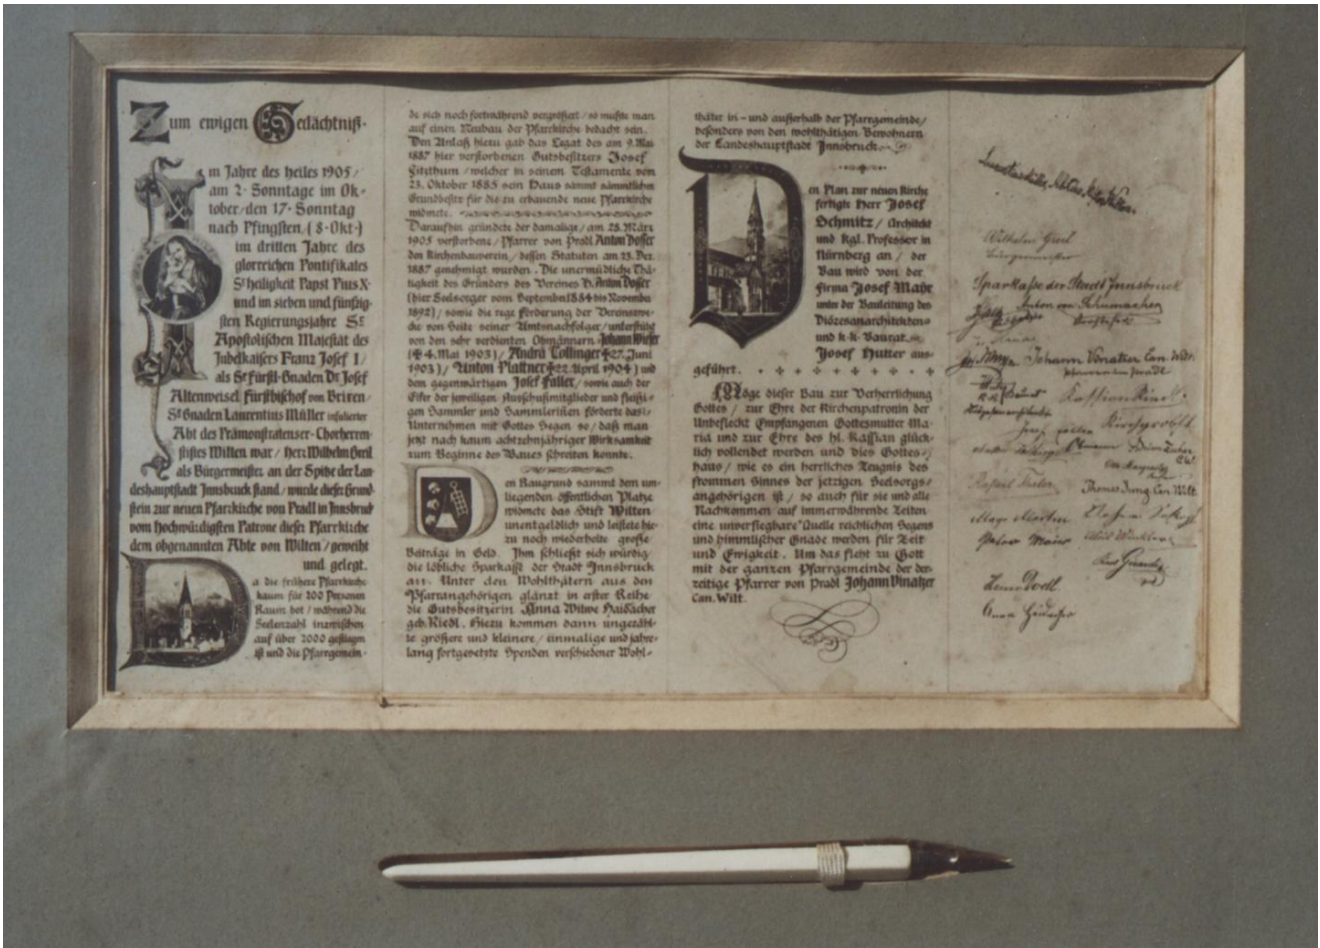 Zum ewigen Gedächtniß.
Im Jahre des Heiles 1905/
am 2. Sonntage im Ok-
tober/den 17. Sonntag
nach Pfingsten/(8.Okt.)
im dritten Jahre des
glorreichen Pontifikates
Sr Heiligkeit Papst Pius X.
und im sieben und fünfzig-
sten Regierungsjahre Sr
Apostolischen Majestät des
Jubelkaisers Franz Josef I/
als Se Fürstl. Gnaden Dr Josef
Altenweisel Fürstbischof von Brixen/
Se Gnaden Laurentius Müller infulierter
Abt des Prämonstratenser-Chorherren-
stiftes Wilten war/Herr Wilhelm Greil
als Bürgermeister an der Spitze der Lan-
deshauptstadt Innsbruck stand/wurde dieser Grund-
stein zur neuen Pfarrkirche von Pradl in Innsbruck
vom hochwürdigsten Patrone dieser Pfarrkirche
dem obgenannten Abte von Wilten/geweiht
und gelegt.
Da die frühere Pfarrkirche
kaum für 200 Personen
Raum bot/während die
Seelenzahl inzwischen
auf über 2000 gestiegen
ist und die Pfarrgemein-
de sich noch fortwährend vergrößert/so mußte man
auf einen Neubau der Pfarrkirche bedacht sein.
Den Anlaß hiezu gab das Legat des am 9. Mai
1887 hier verstorbenen Gutsbesitzers Josef
Fitzthum/welcher in seinem Testamente vom
23. Oktober 1885 sein Haus sammt sämmtlichem
Grundbesitz für die zu erbauende neue Pfarrkirche
widmete.
Daraufhin gründete der damalige/am 28. März
1905 verstorbene/Pfarrer von Pradl Anton Dosser
den Kirchenbauverein/dessen Statuten am 13. Dez.
1887 genehmigt wurden. Die unermüdliche Thä-
tigkeit des Gründers des Vereines H. Anton Dosser
(hier Seelsorger vom September 1884 bis November
1892)/sowie die rege Förderung der Vereinszwe-
cke von Seite seiner Amtsnachfolger/unterstützt
von den sehr verdienten Obmännern Johann Wieser
(✝ 4. Mai 1903)/Andrä Tollinger ✝ 27. Juni
1903)/Anton Plattner ✝ 22. April 1904) und
dem gegenwärtigen Josef Faller/sowie auch der
Eifer der jeweiligen Ausschußmitglieder und fleißi-
gen Sammler und Sammlerinen förderte das
Unternehmen mit Gottes Segen so/daß man
jetzt nach kaum achtzehnjähriger Wirksamkeit
zum Beginne des Baues schreiten konnte.
Den Baugrund sammt dem um-
liegenden öffentlichen Platze
widmete das Stift Wilten
unentgeldlich und leistete hie-
zu noch wiederholte große
Beiträge in Geld. Ihm schließt sich würdig
die löbliche Sparkasse der Stadt Innsbruck
an. Unter den Wohlthätern aus den
Pfarrangehörigen glänzt in erster Reihe
die Gutsbesitzerin Anna Witwe Haidacher
geb. Riedl. Hiezu kommen dann ungezähl-
te größere und kleinere/einmalige und jahre-
lang fortgesetzte Spenden verschiedener Wohl-
thäter in- und außerhalb der Pfarrgemeinde/
besonders von den wohlthätigen Bewohnern
der Landeshauptstadt Innsbruck.
Den Plan zur neuen Kirche
fertigte Herr Josef
Schmitz/Architekt
und kgl. Professor in
Nürnberg an/der
Bau wird von der
Firma Josef Mahr
unter der Bauleitung des
Diözesanarchitekten
und k.k. Baurat
Josef Hutter aus-
geführt.
Möge dieser Bau zur Verherrlichung
Gottes/zur Ehre der Kirchenpatronin der
Unbefleckt Empfangenen Gottesmutter Ma-
ria und zur Ehre des hl. Kassian glück-
lich vollendet werden und dies Gottes-
haus/wie es ein herrliches Zeugnis des
frommen Sinnes der jetzigen Seelsorgs-
angehörigen ist/so auch für sie und alle
Nachkommen/auf immerwährende Zeiten
eine unversiegbare Quelle reichlichen Segens
und himmlischer Gnade werden für Zeit
und Ewigkeit. Um das fleht zu Gott
mit der ganzen Pfarrgemeinde der der-
zeitige Pfarrer von Pradl Johann Vinatzer
Can. Wilt.
Wilhelm Greil
Bürgermeister
Sparkasse der Stadt Innsbruck
Anton von Schumacher
Johann Vinatzer Can. Wilt.
Pfarrer in Pradl
Kirchpropst
Thomas Jung Can. Wilt.
Peter Maier
Alois Winkler